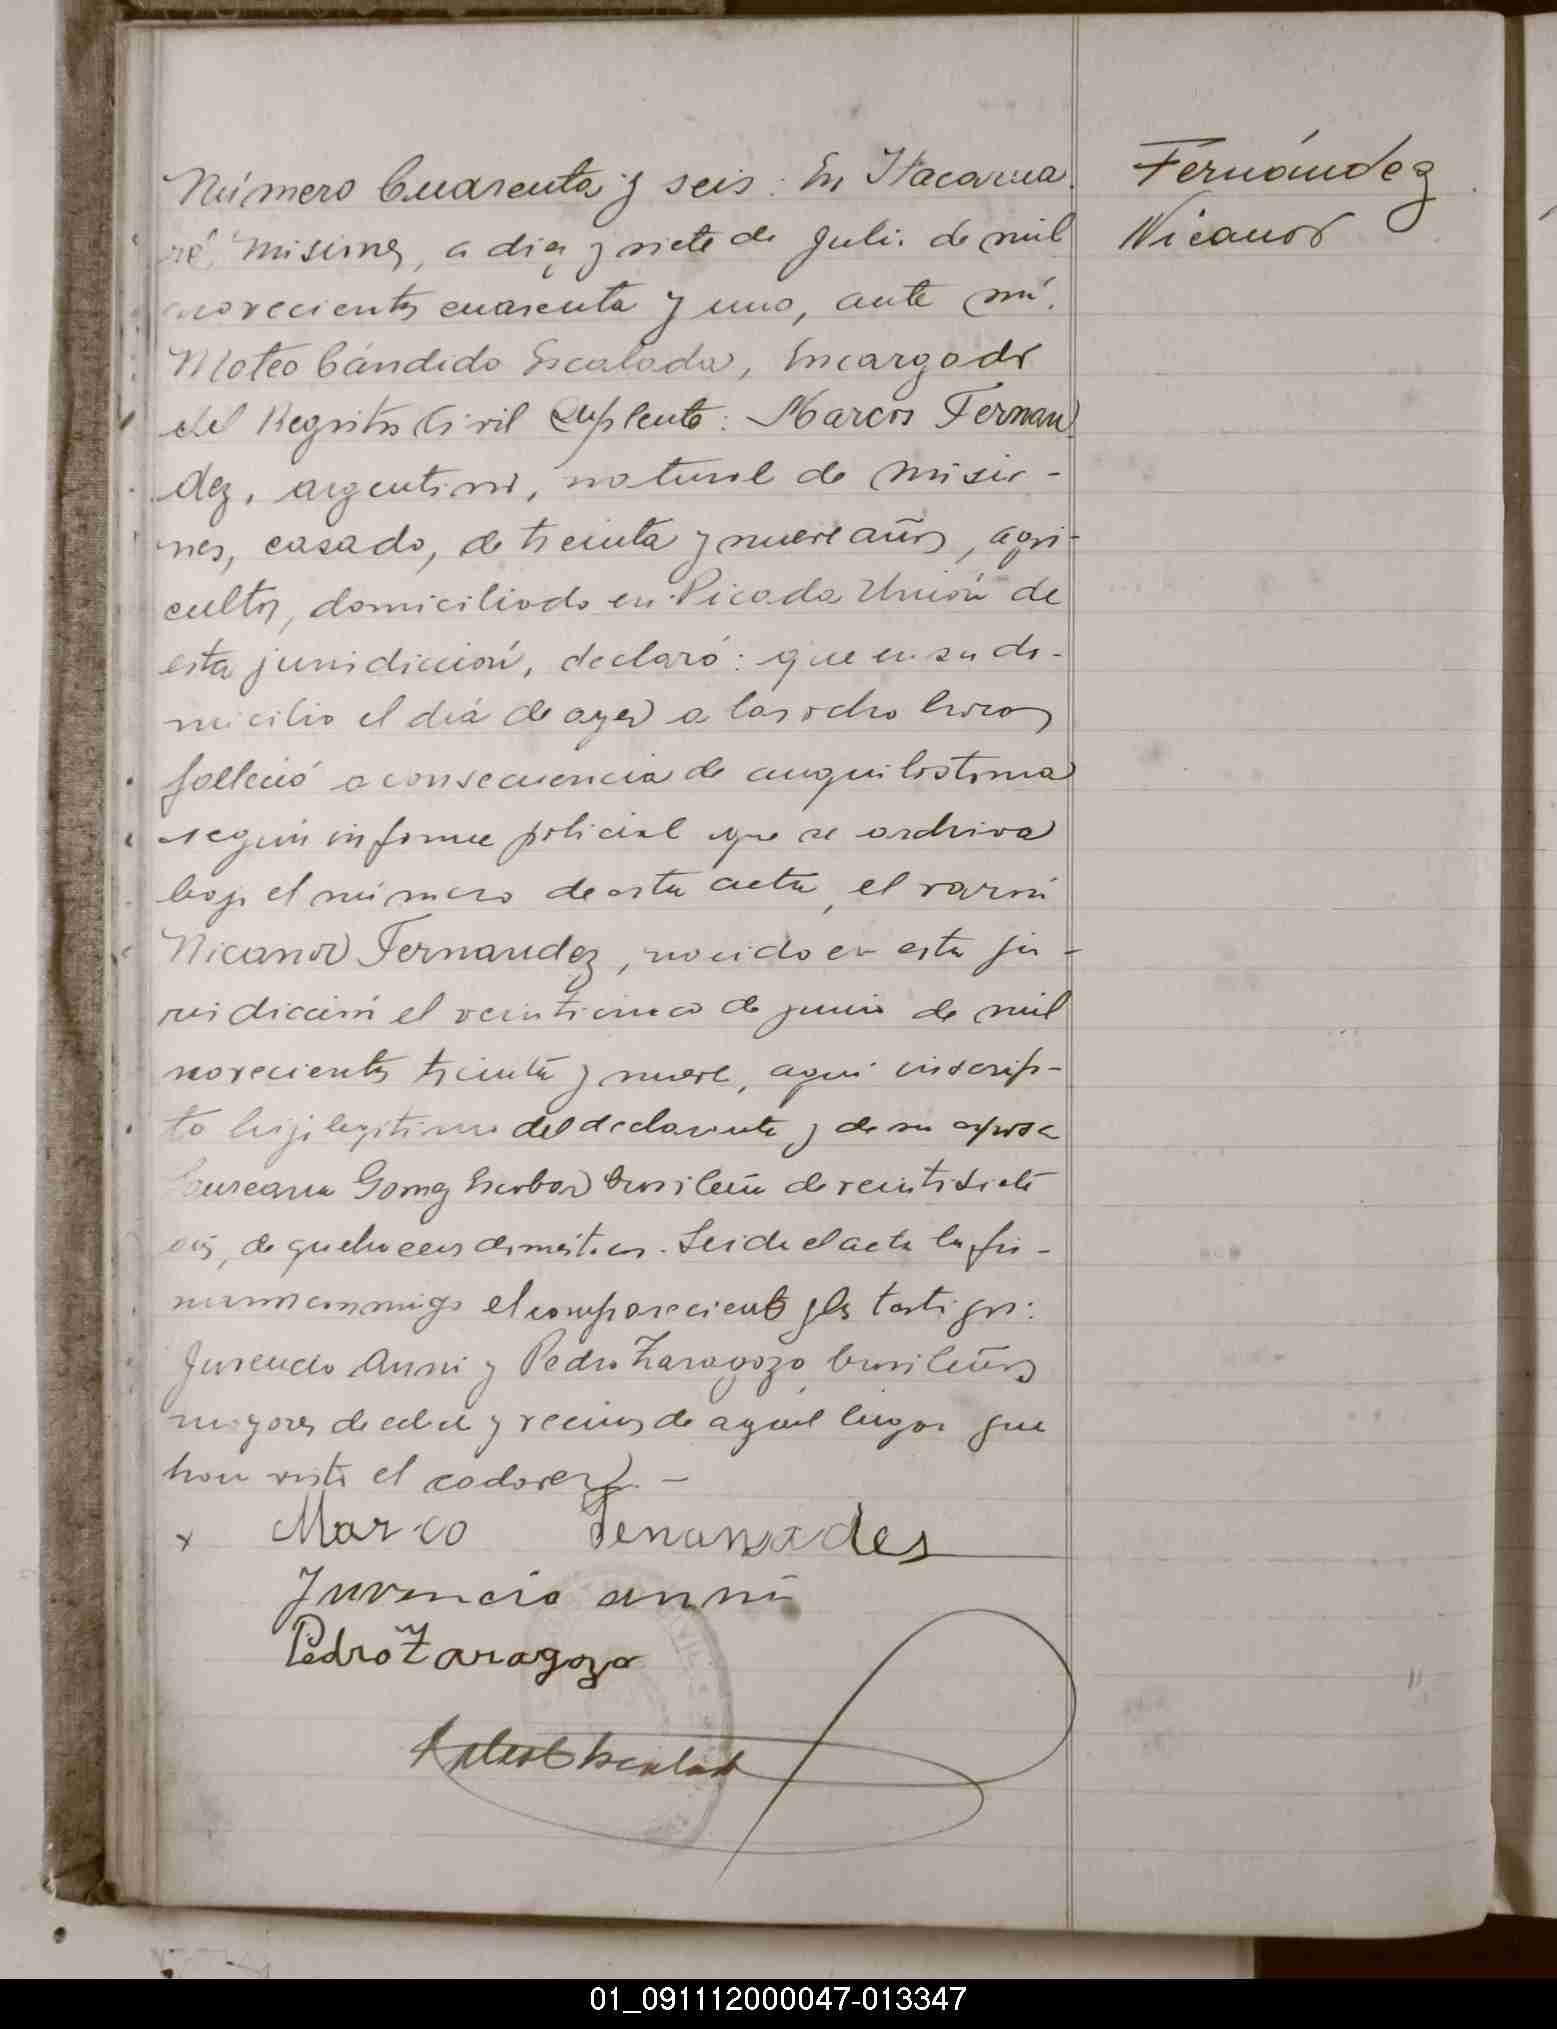 Número Cuarenta y seis: En Itacarua
ré, Misiones, a diez y siete de Julio de mil
novecientos cuarenta y uno, ante mí.
Mateo Cándido Escalada, Encargado
del Registro Civil Suplente: Marcos Fernan
dez, argentino, natural de Misio-
nes, casado, de treinta y nueve años, agri-
cultor, domiciliado en Picada Unión de
esta jurisdicción, declaró: que en su do-
micilio el día de ayer a las ocho horas
falleció a consecuencia de anquilostoma
según informe policial que se archiva
bajo el número de esta acta, el varón
Nicanor Fernandez, nacido en esta ju-
risdicción el veinticinco de junio de mil
novecientos treinta y nueve, aquí inscrip-
to hijo legítimo del declarante y de su esposa
Laureana Gomez Escobar brasileña de veintisiete
años, de quehaceres domésticos. Leida el acta la fir-
maron conmigo el compareciente y los testigos:
Juvencio Anni y Pedro Zaragozo brasileños
mayores de edad y vecinos de aquel lugar que
han visto el cadáver. -
x Marco Fenanades
Juvencio anni
Pedro Zaragozo
Fernández
Nicanor
01_091112000047-013347